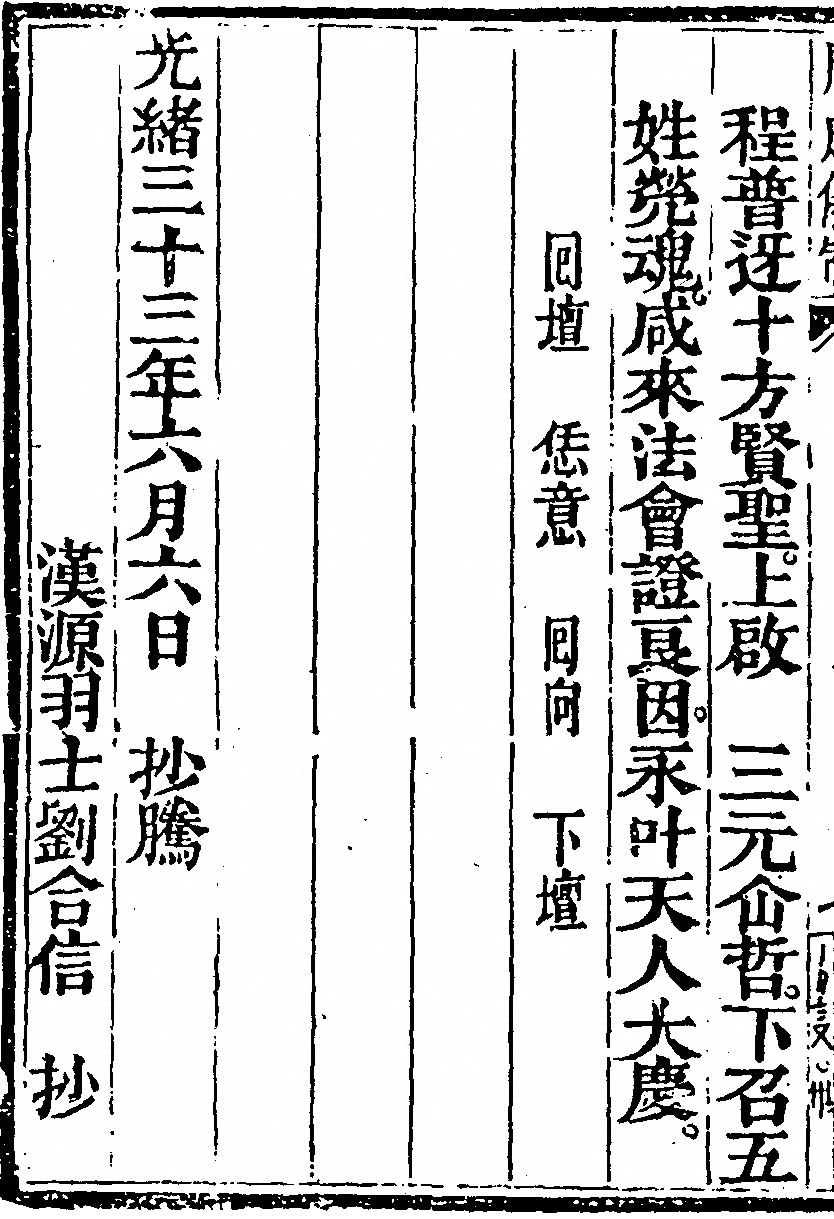 程普迓十方賢聖。上啟 三元仚哲。下召五
姓焭魂。咸來法會證良因。永叶天人大慶。
囘壇 恁意 囘向 下壇
光緒三十三年六月六日 抄騰
漢源羽士劉合信 抄